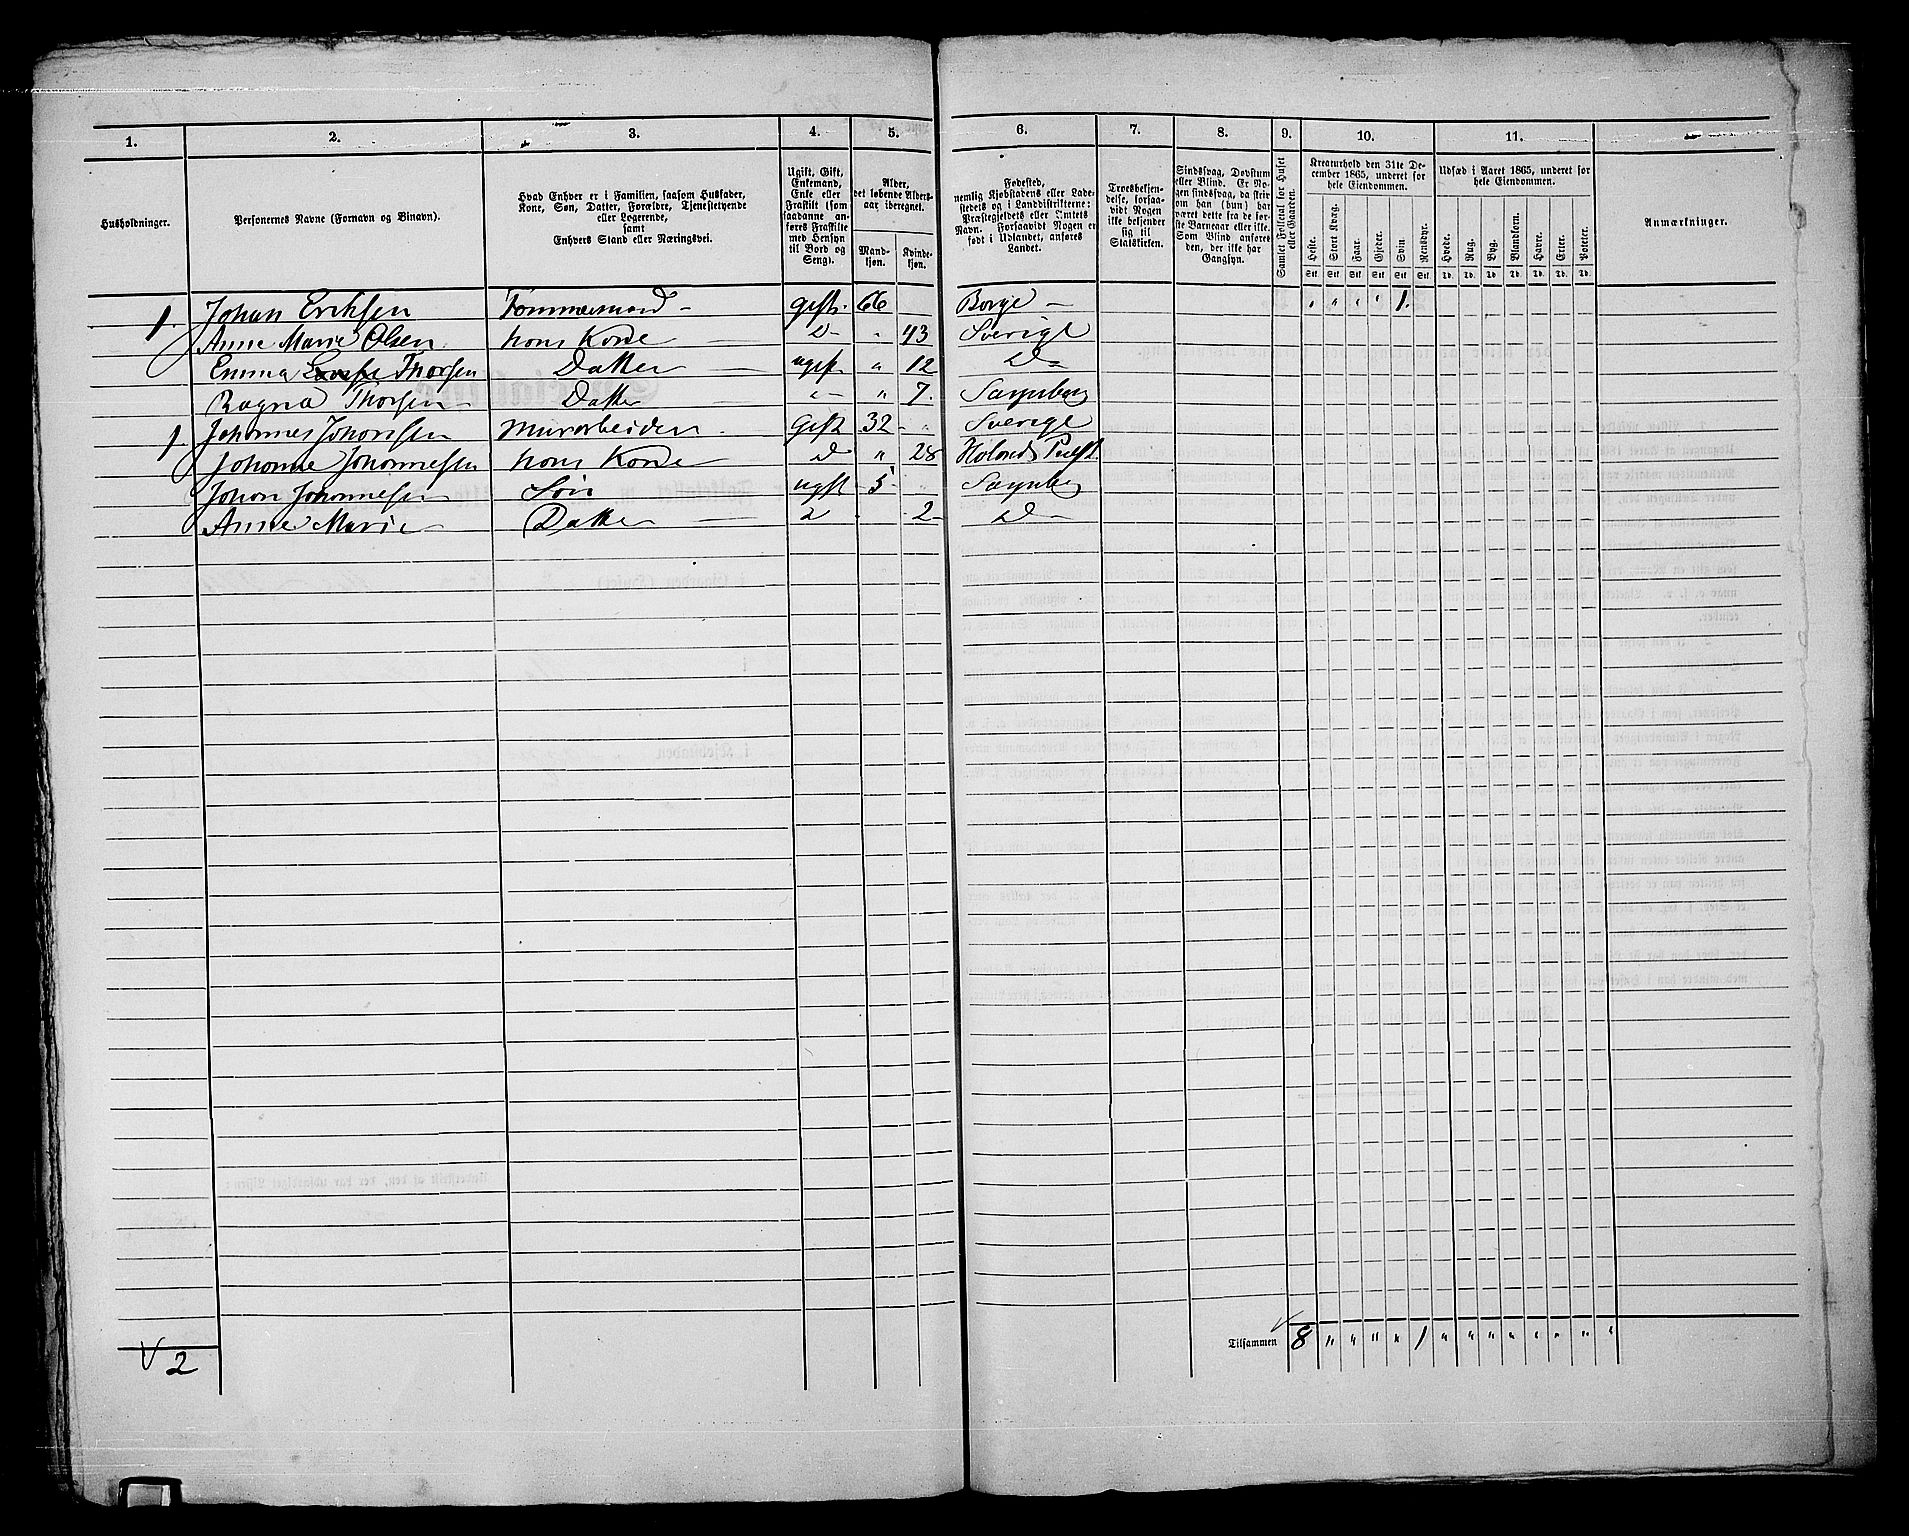 1. 2. 3. 4. 5. 6. 7. 8. 9. 10. 11.
Husholdninger.
Personernes Navne (Fornavn og Binavn).
Hvad Enhver er i Familien, saasom Husfader,
Kone, Søn, Datter, Forældre, Tjenestetyende
eller Logerende,
samt
Enhvers Stand eller Næringsvei.
Ugift, Gift,
Enkemand,
Enke eller
Fraskilt (som
saadanne an-
føres Fraskilte
med Hensyn
til Bord og
Seng).
Alder,
det løbende Alders-
aar iberegnet.
Mand-
kjøn.
Kvinde-
kjøn.
Fødested,
nemlig Kjøbstadens eller Lade-
stedets og i Landdistrikterne:
Præstegjeldets eller Amtets
Navn. Forsaavidt Nogen er
født i Udlandet, anføres
Landet.
Troesbekjen-
delse, forsaa-
vidt Nogen
ikke bekjender
sig til
Statskirken.
Sindssvag, Døvstum
eller Blind. Er No-
gen sindssvag, da skrives
om han (hun) har
været dette fra de før-
ste Barneaar eller ikke.
Som Blind anføres
den, der ikke har
Gangsyn.
Samlet Folketal for Huset
eller Gaarden.
Kreaturhold den 31te De-
cember 1865, underet for
hele Eiendommen.
Heste. Stort Kvæg. Faar. Gjeder. Svin. Rensdyr.
Stk. Stk. Stk. Stk. Stk. Stk.
Udsæd i Aaret 1865, underet for
hele Eiendommen.
Hvede. Rug. Byg. Blandkorn. Havre. Erter. Poteter.
Td. Td. Td. Td. Td. Td. Td.
Anmærkninger.
1. Johan Eriksen Tømmermand - Gift. 66 Borge - " " " " 1.
Anne Marie Olsen hans Kone D - " 43 Sverige
Emma Thorsen Datter ugift " 12 D -
Ragna Thorsen Datter " - " 7. Sarpsborg
1 Johannes Johansen Murarbeider - Gift 32 - " Sverige
Johanne Johannesen hans Kone D " 28 Holands
Johan Johannesen Søn ugift - 5 - " Sarpsborg
Anne Marie Datter D 2 - D -
Tilsammen 8 " " " " 1 " " " " " " " "
√ 2